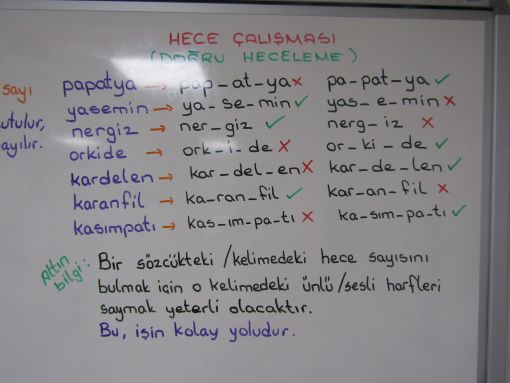 HECE ÇALIŞMASI
(DOĞRU HECELEME)
sayı
utulur,
ayılır.
papatya → pap-at-ya x pa-pat-ya ✓
yasemin → ya-se-min ✓ yas-e-min x
nergiz → ner-giz ✓ nerg-iz x
orkide → ork-i-de x or-ki-de ✓
kardelen → kar-del-en x kar-de-len ✓
karanfil → ka-ran-fil ✓ kar-an-fil x
kasımpatı → kas-ım-pa-tı x ka-sım-pa-tı ✓
Altın bilgi: Bir sözcükteki/kelimedeki hece sayısını
bulmak için o kelimedeki ünlü/sesli harfleri
saymak yeterli olacaktır.
Bu, işin kolay yoludur.